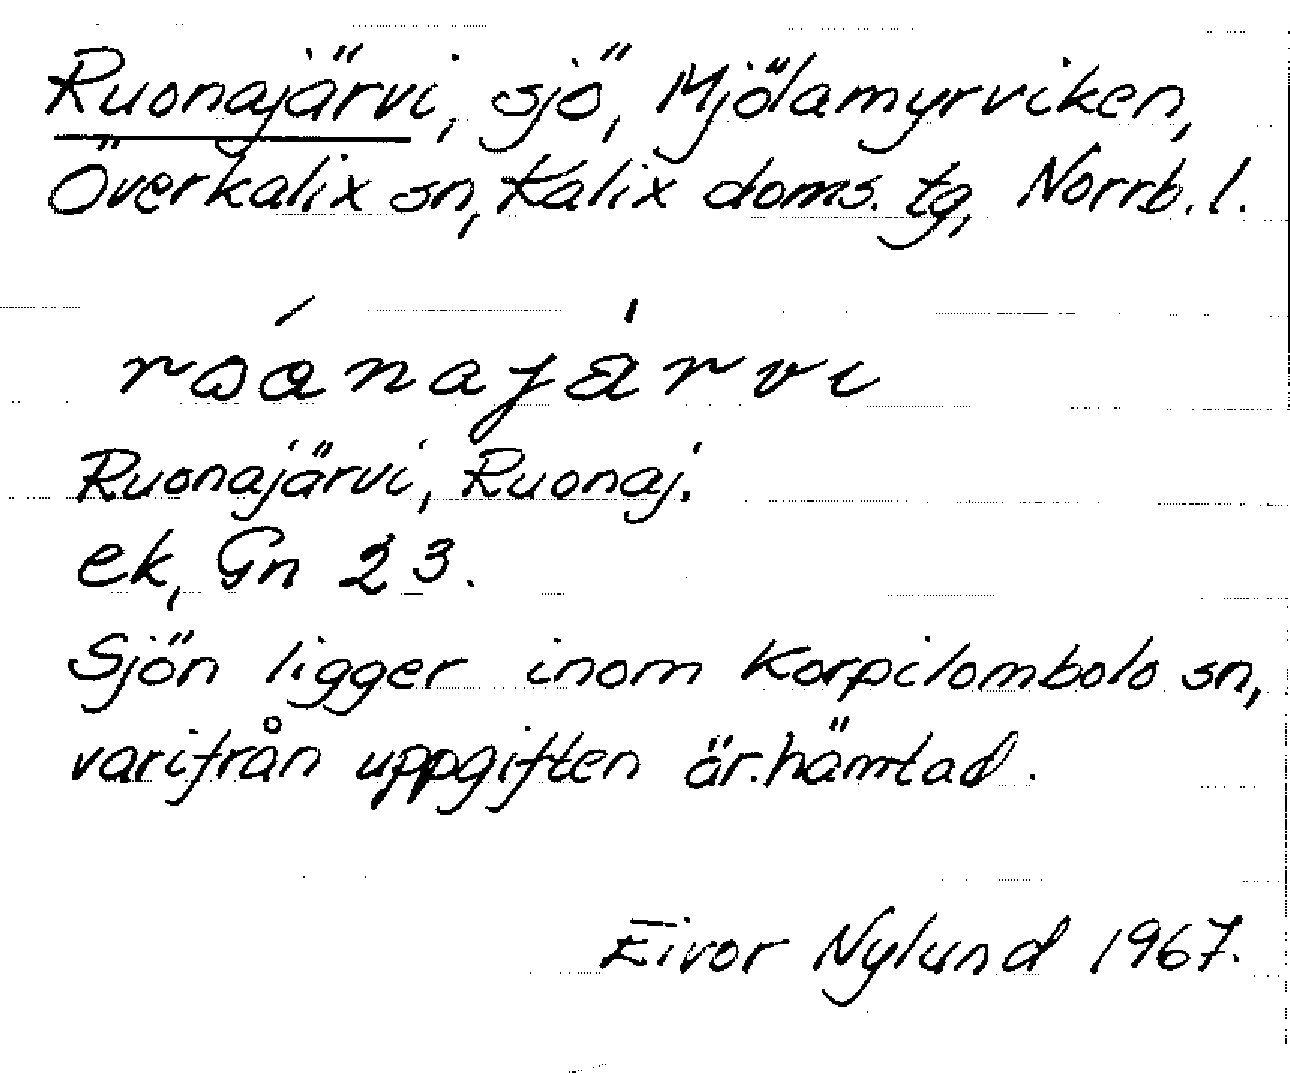 Ruonajärvi, sjö, Mjölamyrviken,
Överkalix sn, Kalix doms. tg, Norrb. l.
Ruonajärvi, Ruonaj.
ek, Gn 23.
Sjön ligger inom Korpilombolo sn,
varifrån uppgiften är hämtad.
Eivor Nylund 1967.